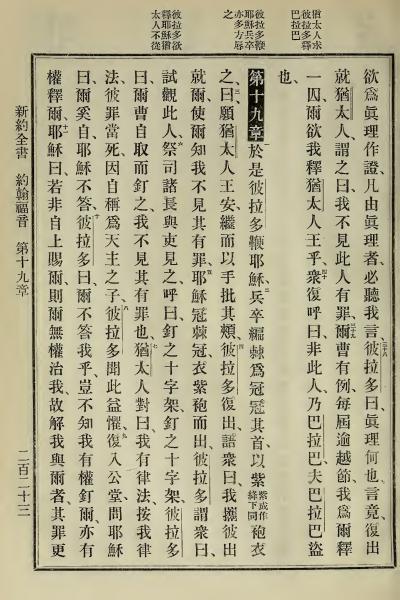 猶太人求
彼拉多釋
巴拉巴
彼拉多鞭
耶穌兵卒
亦多方辱
之
彼拉多欲
釋耶穌猶
太人不從
欲爲眞理作證、凡由眞理者、必聽我言、三十八彼拉多曰、眞理何也、言竟、復出
就猶太人、謂之曰、我不見此人有罪、三十九爾曹有例、每屆逾越節、我爲爾釋
一囚、爾欲我釋猶太人王乎、四十衆復呼曰、非此人、乃巴拉巴、夫巴拉巴盜
也、
第十九章 一於是彼拉多鞭耶穌、二兵卒編棘爲冠、冠其首、以紫紫或作絳下同袍衣
之、三曰、願猶太人王安、繼而以手批其頰、四彼拉多復出、語衆曰、我攜彼出
就爾、使爾知我不見其有罪、五耶穌冠棘冠、衣紫袍而出、彼拉多謂衆曰、
試觀此人、六祭司諸長與吏見之、呼曰、釘之十字架、釘之十字架、彼拉多
曰、爾曹自取而釘之、我不見其有罪也、七猶太人對曰、我有律法、按我律
法、彼罪當死、因自稱爲天主之子、八彼拉多聞此益懼、九復入公堂、問耶穌
曰、爾奚自、耶穌不答、十彼拉多曰、爾不答我乎、豈不知我有權釘爾、亦有
權釋爾、十一耶穌曰、若非自上賜爾、則爾無權治我、故解我與爾者、其罪更
新約全書 約翰福音 第十九章 二百二十三